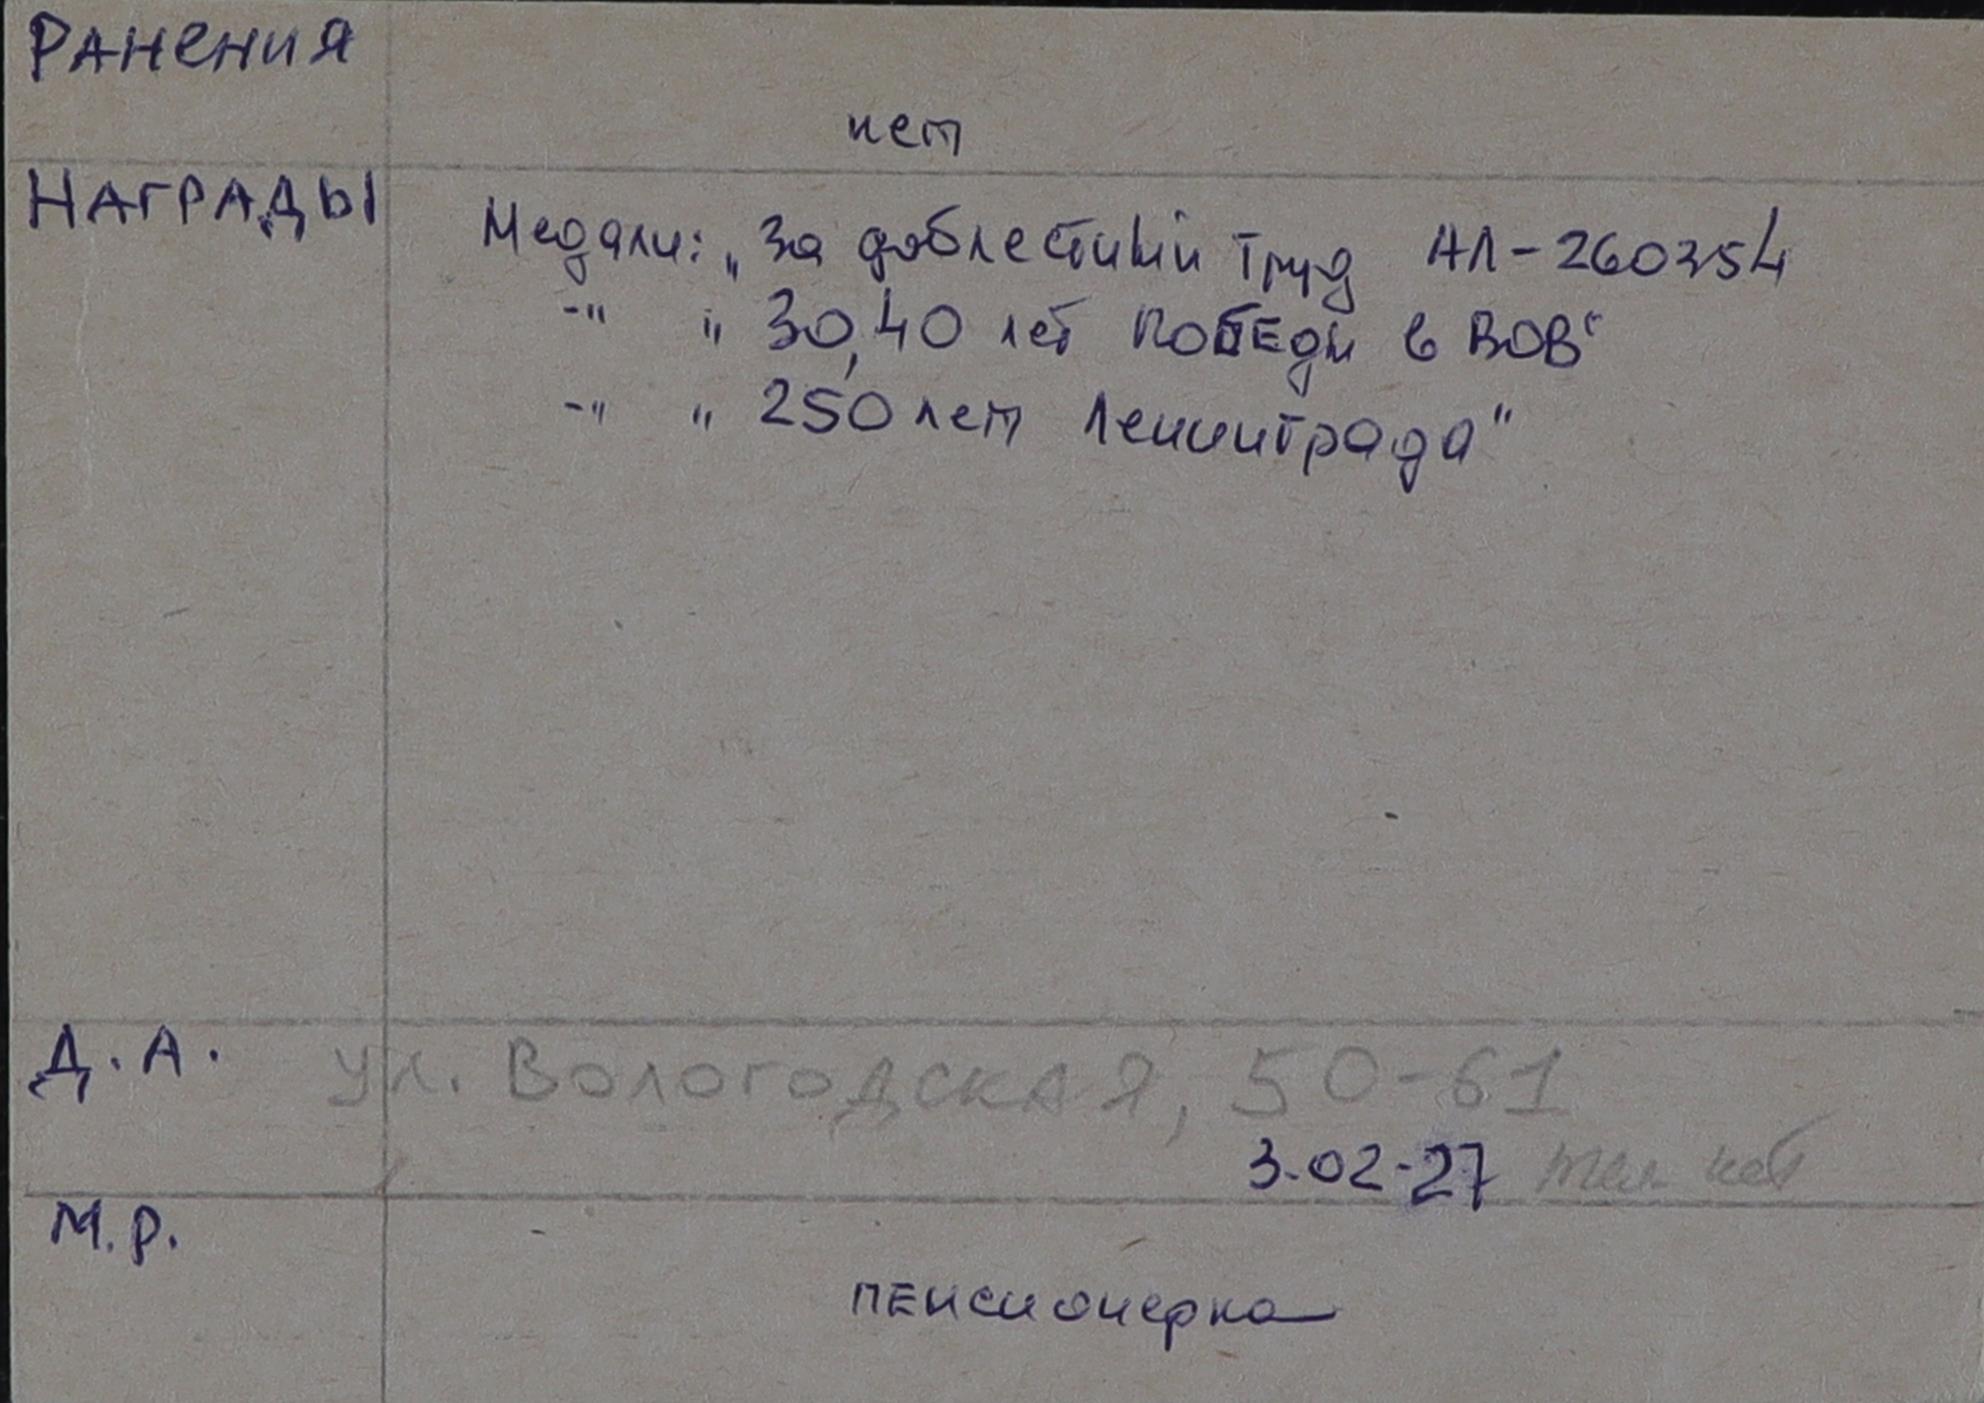 РАНЕНИЯ
нет
НАГРАДЫ Медали: „За доблестный труд АЛ-260354
-"- „30,40 лет ПОБЕДЫ в ВОВ"
-"- „250 лет Ленинграда"
Д.А. ул. Вологодская, 50-61
3-02-27 тел. нет
М.Р.
ПЕНСИОНЕРКА